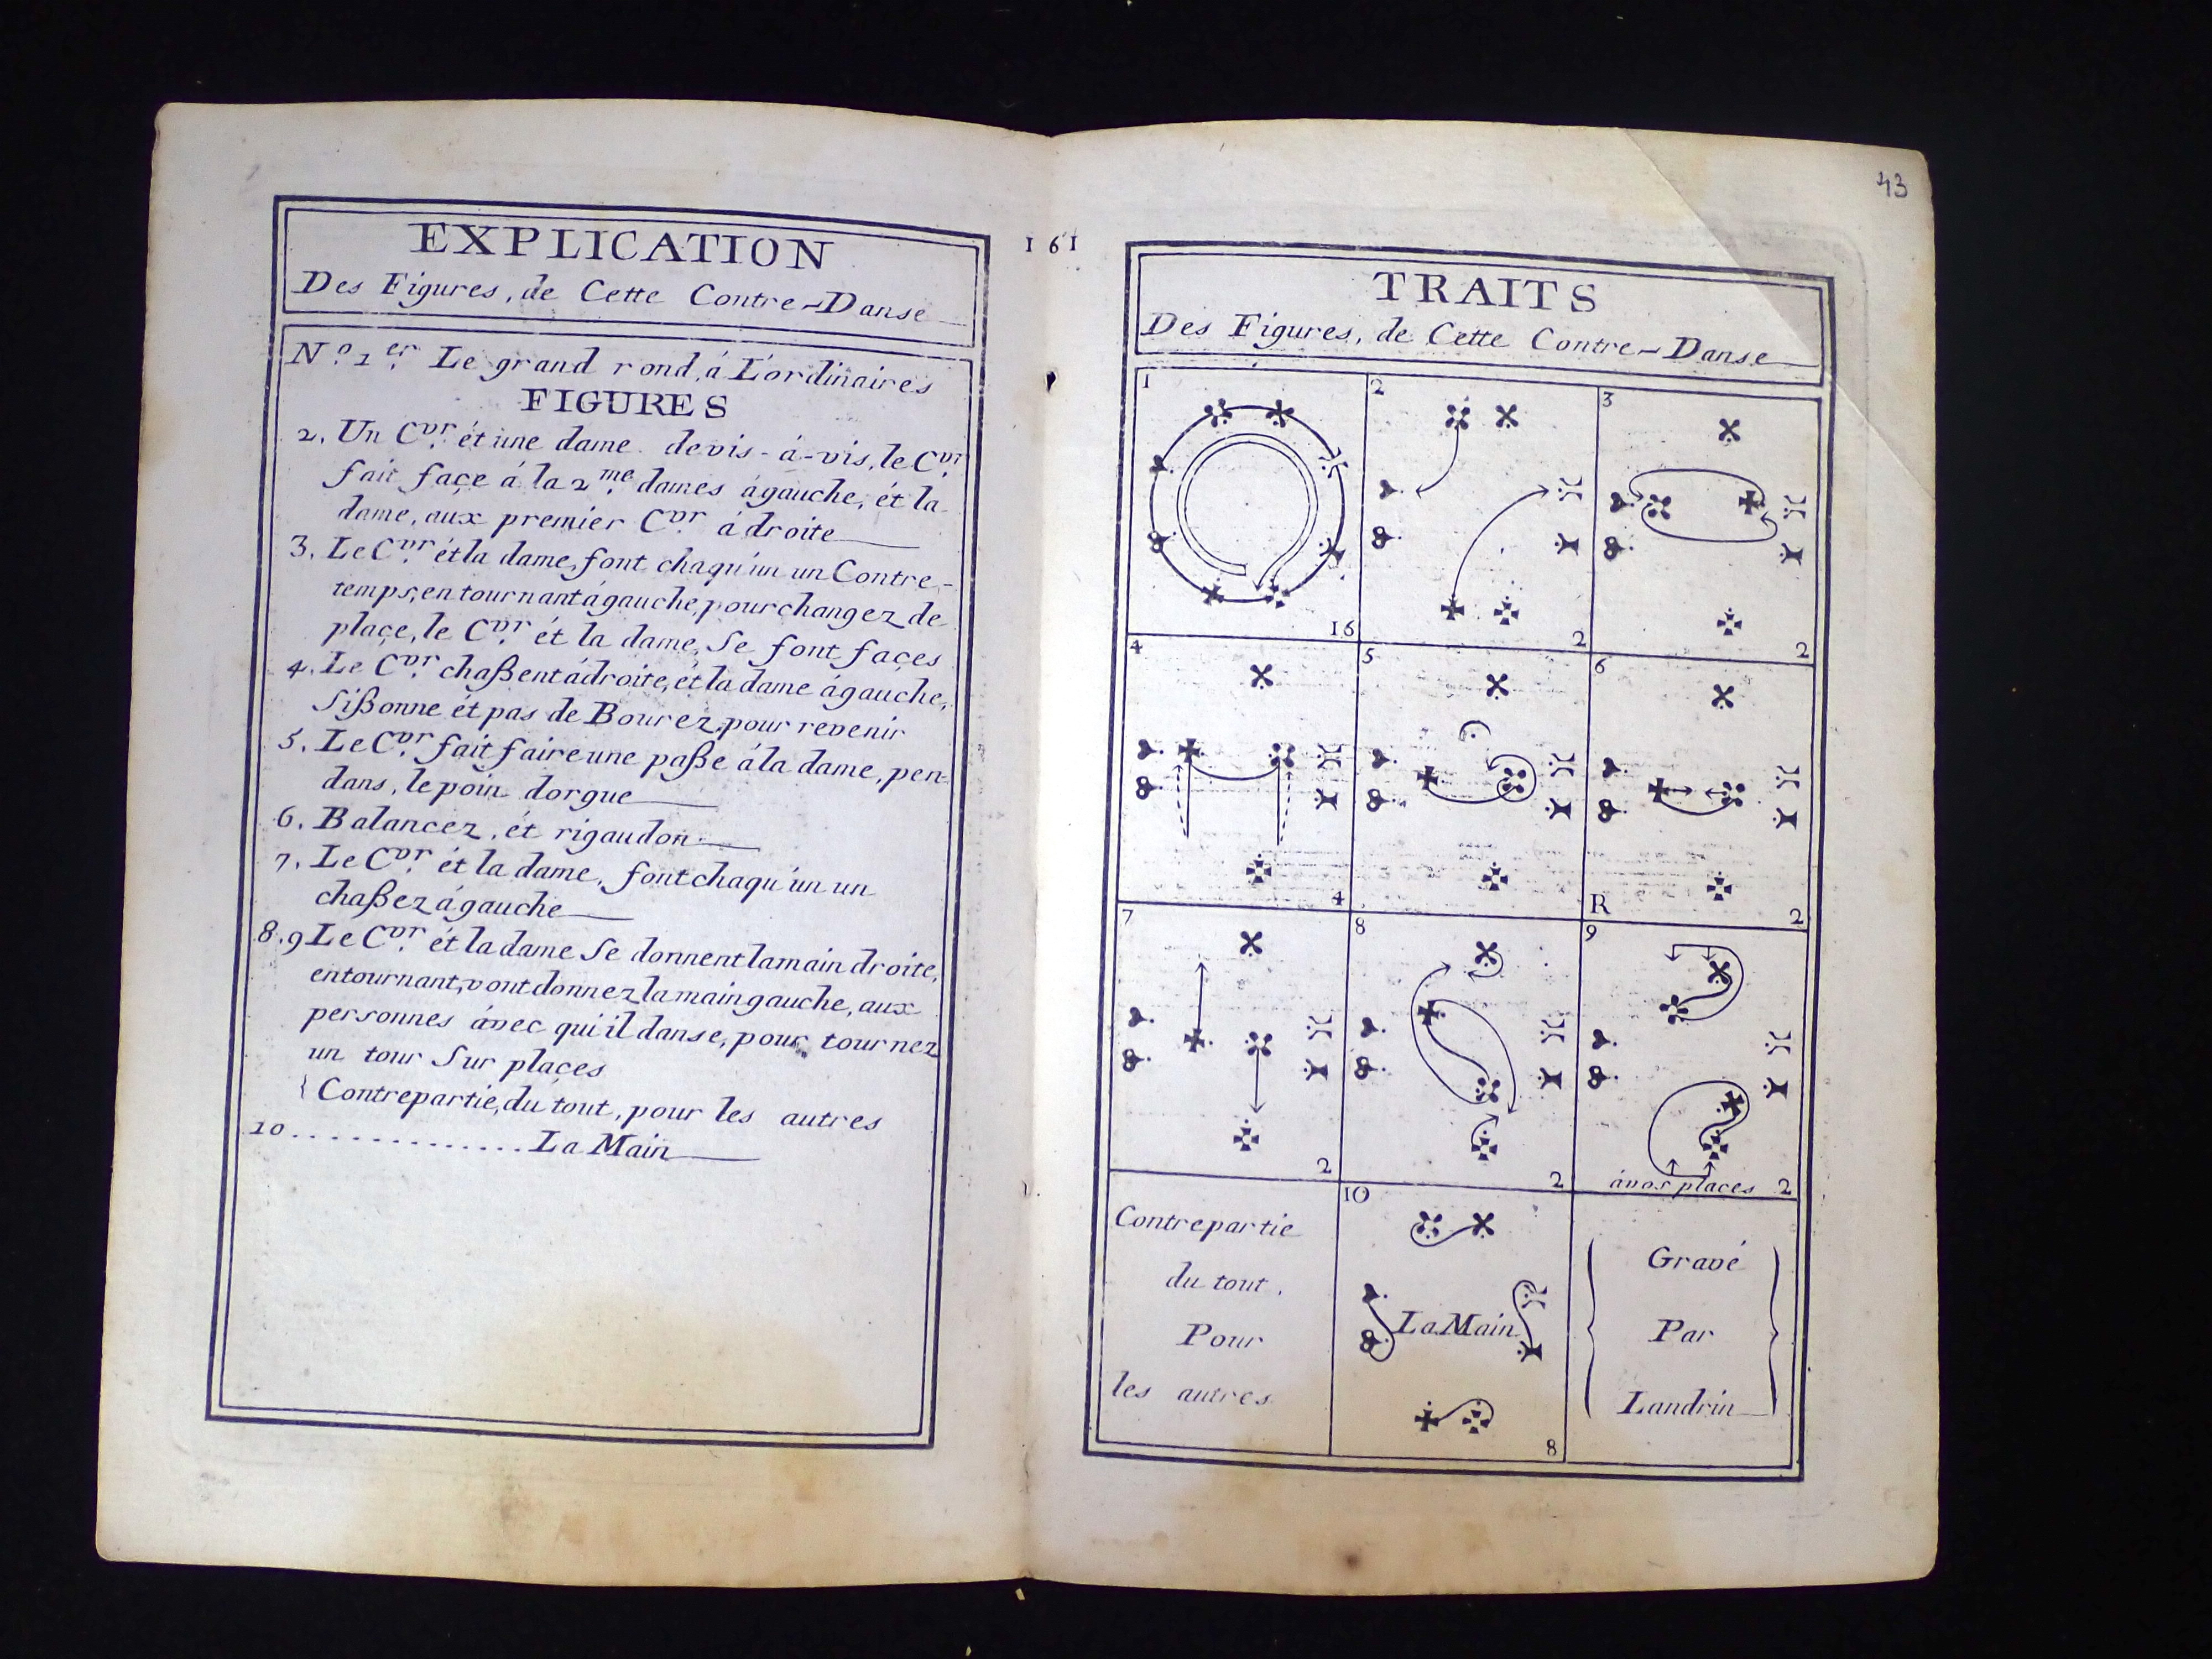 EXPLICATION
Des Figures, de Cette Contre-Danse
N.º 1.er Le grand rond, á L'ordinaires
FIGURES
2. Un C.vr ét une dame de vis-á-vis, le C.vr
fait façe á la 2.me dames ágauche, ét la
dame, aux premier C.vr á droite
3. Le C.vr ét la dame, font chaqu'un un Contre-
temps, en tournant ágauche, pour changez de
plaçe, le C.vr ét la dame, Se font façes
4. Le C.vr chaßent ádroite, ét la dame ágauche,
Sißonne ét pas de Bourez, pour revenir
5. Le C.vr fait faire une paße á la dame, pen-
dans, le poin dorgue
6. Balancez, ét rigaudon
7. Le C.vr ét la dame, font chaqu'un un
chaßez ágauche
8.9 Le C.vr ét la dame Se donnent lamain droite,
entournant, vont donnez la main gauche, aux
personnes ávec qui il danse, pour tournez
un tour Sur plaçes
{ Contrepartie, du tout, pour les autres
10..............La Main
161
43
TRAITS
Des Figures, de Cette Contre-Danse
1
16
2
2
3
2
4
4
5
6
R
2
7
2
8
2
9
ávos places 2
Contrepartie
du tout,
Pour
les autres
10
La Main
8
Gravé
Par
Landrin